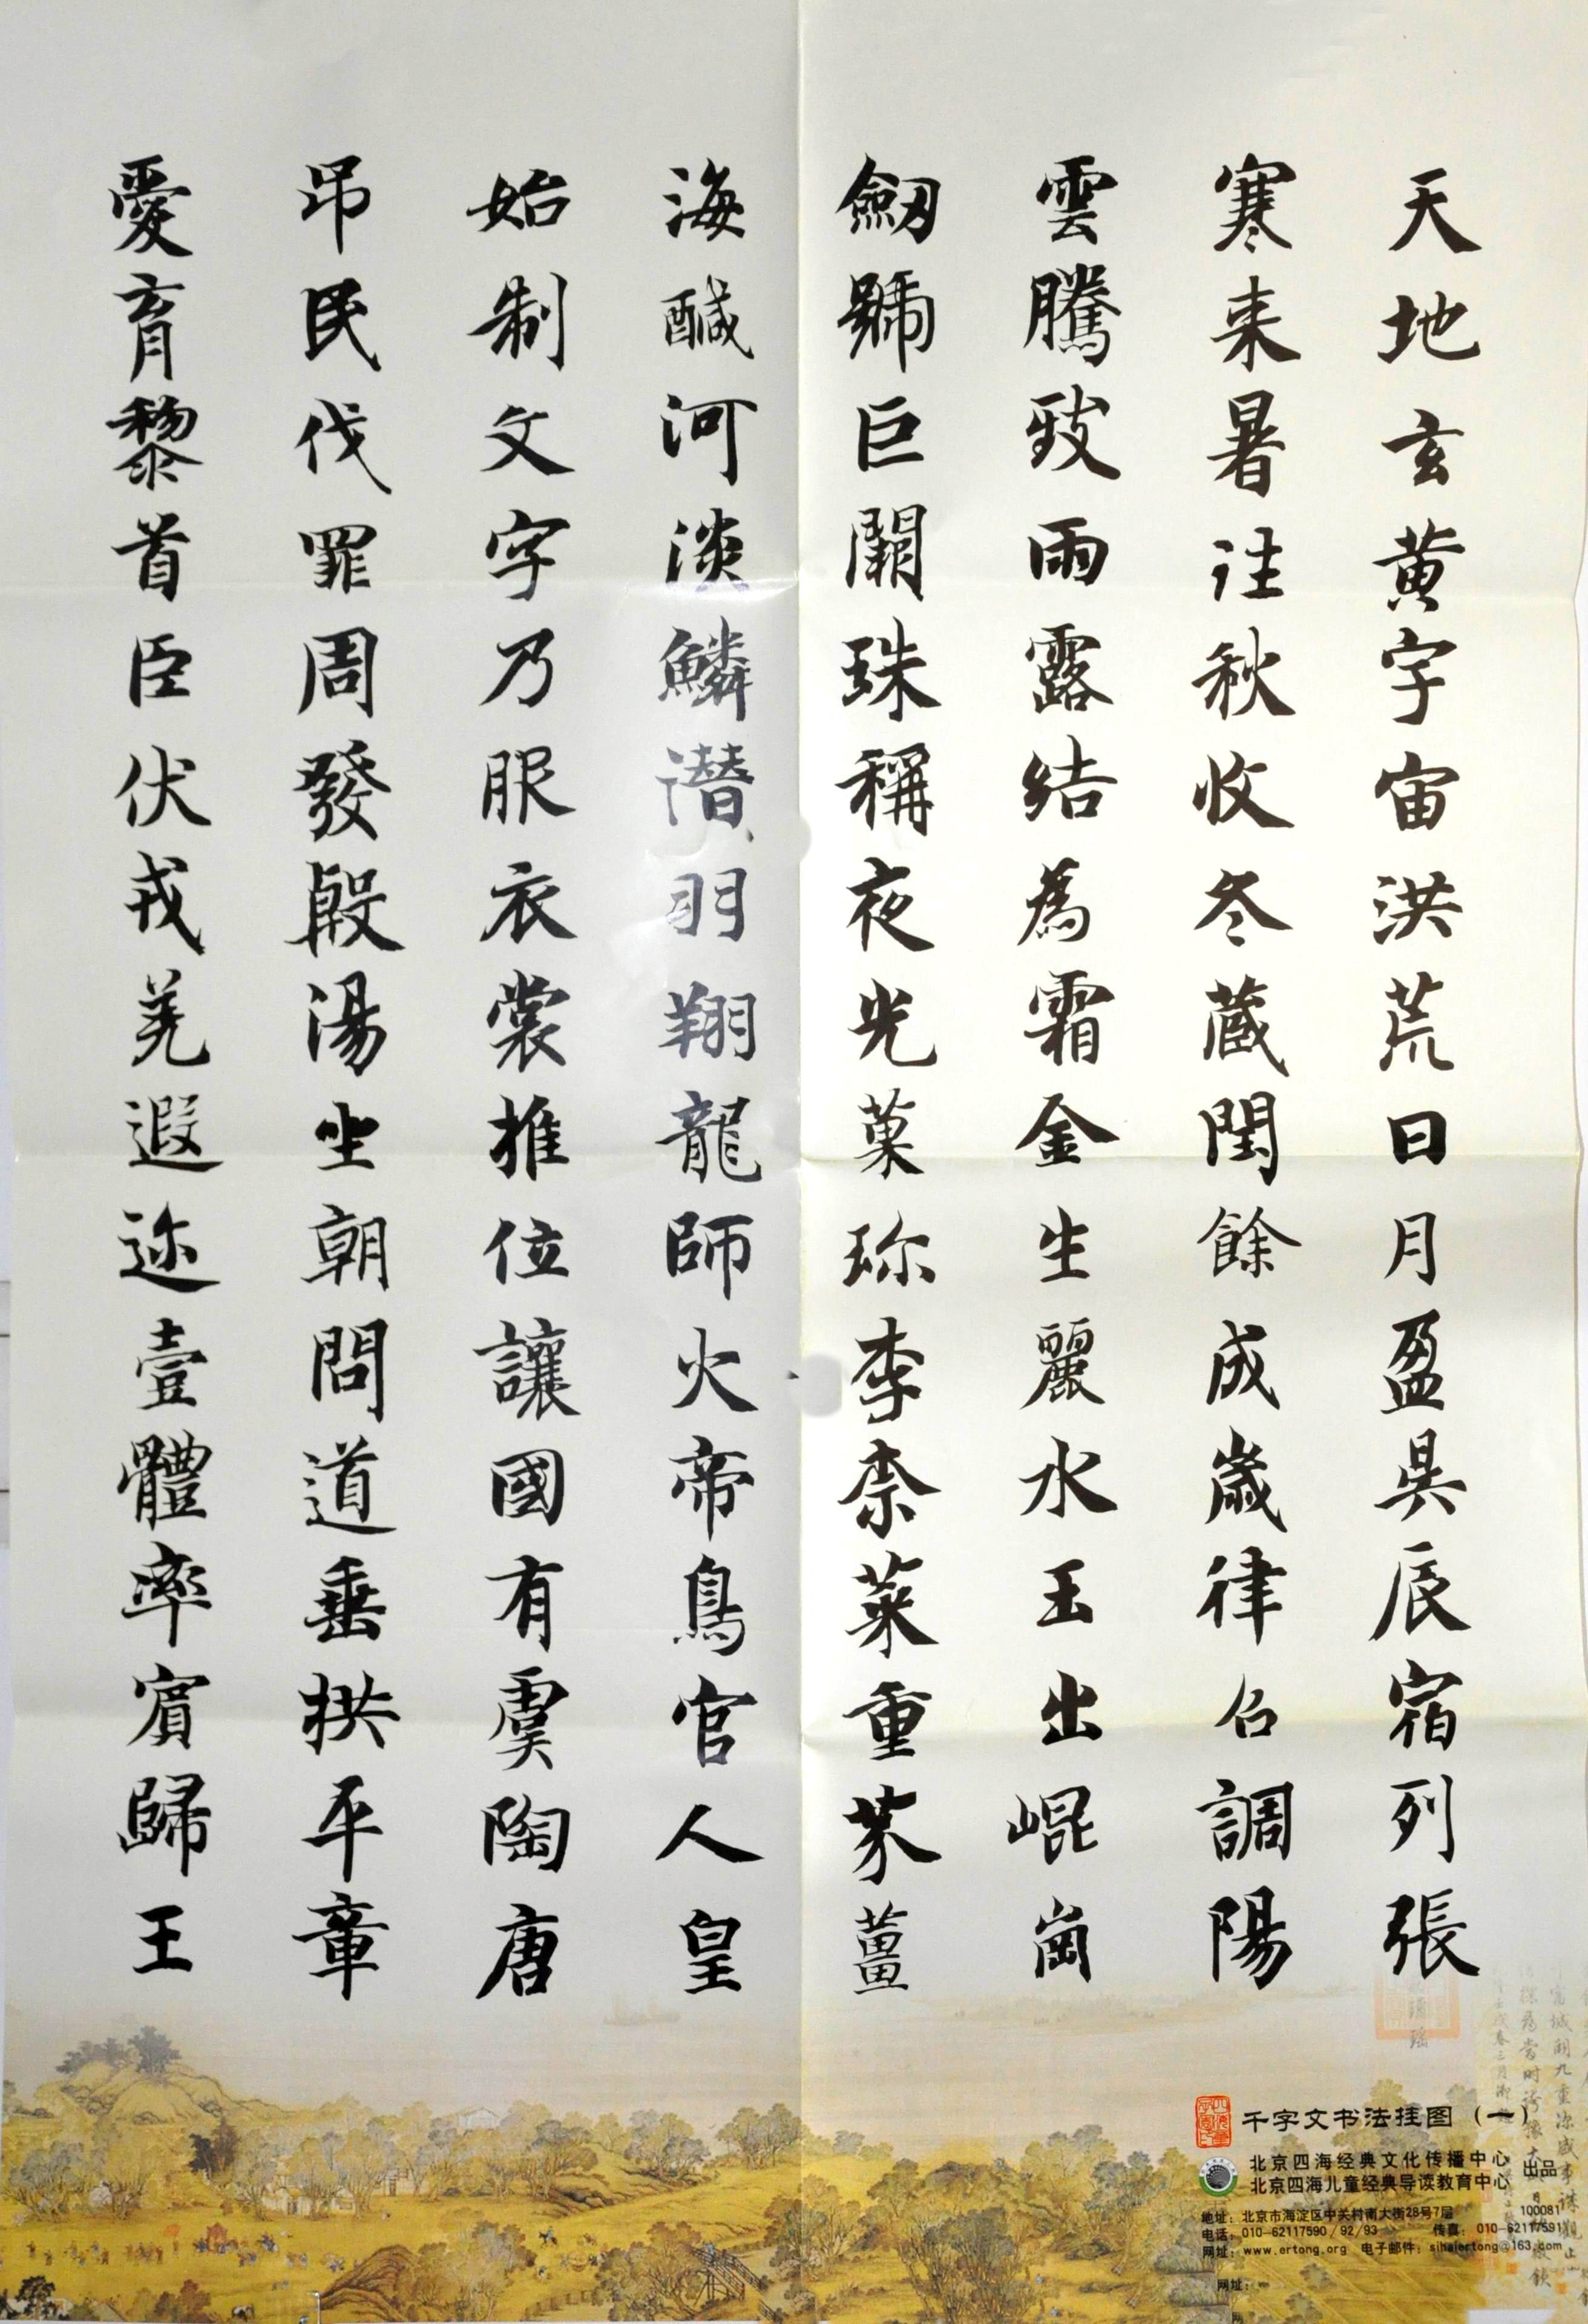 天地玄黄宇宙洪荒日月盈昃辰宿列張
寒来暑往秋收冬蔵閏餘成歲律召調陽
雲騰致雨露結為霜金生麗水玉出崐崗
劒號巨闕珠稱夜光菓珎李柰菜重芥薑
海醎河淡鱗潛羽翔龍師火帝鳥官人皇
始制文字乃服衣裳推位讓國有虞陶唐
吊民伐罪周發殷湯坐朝問道垂拱平章
愛育黎首臣伏戎羌遐迩壹體率賓歸王
千字文书法挂图（一）
北京四海经典文化传播中心
北京四海儿童经典导读教育中心 出品
地址：北京市海淀区中关村南大街28号7层 100081
电话：010-62117590/92/93 传真：010-62117591
网址：www.ertong.org 电子邮件：sihaiertong@163.com
网址：
网